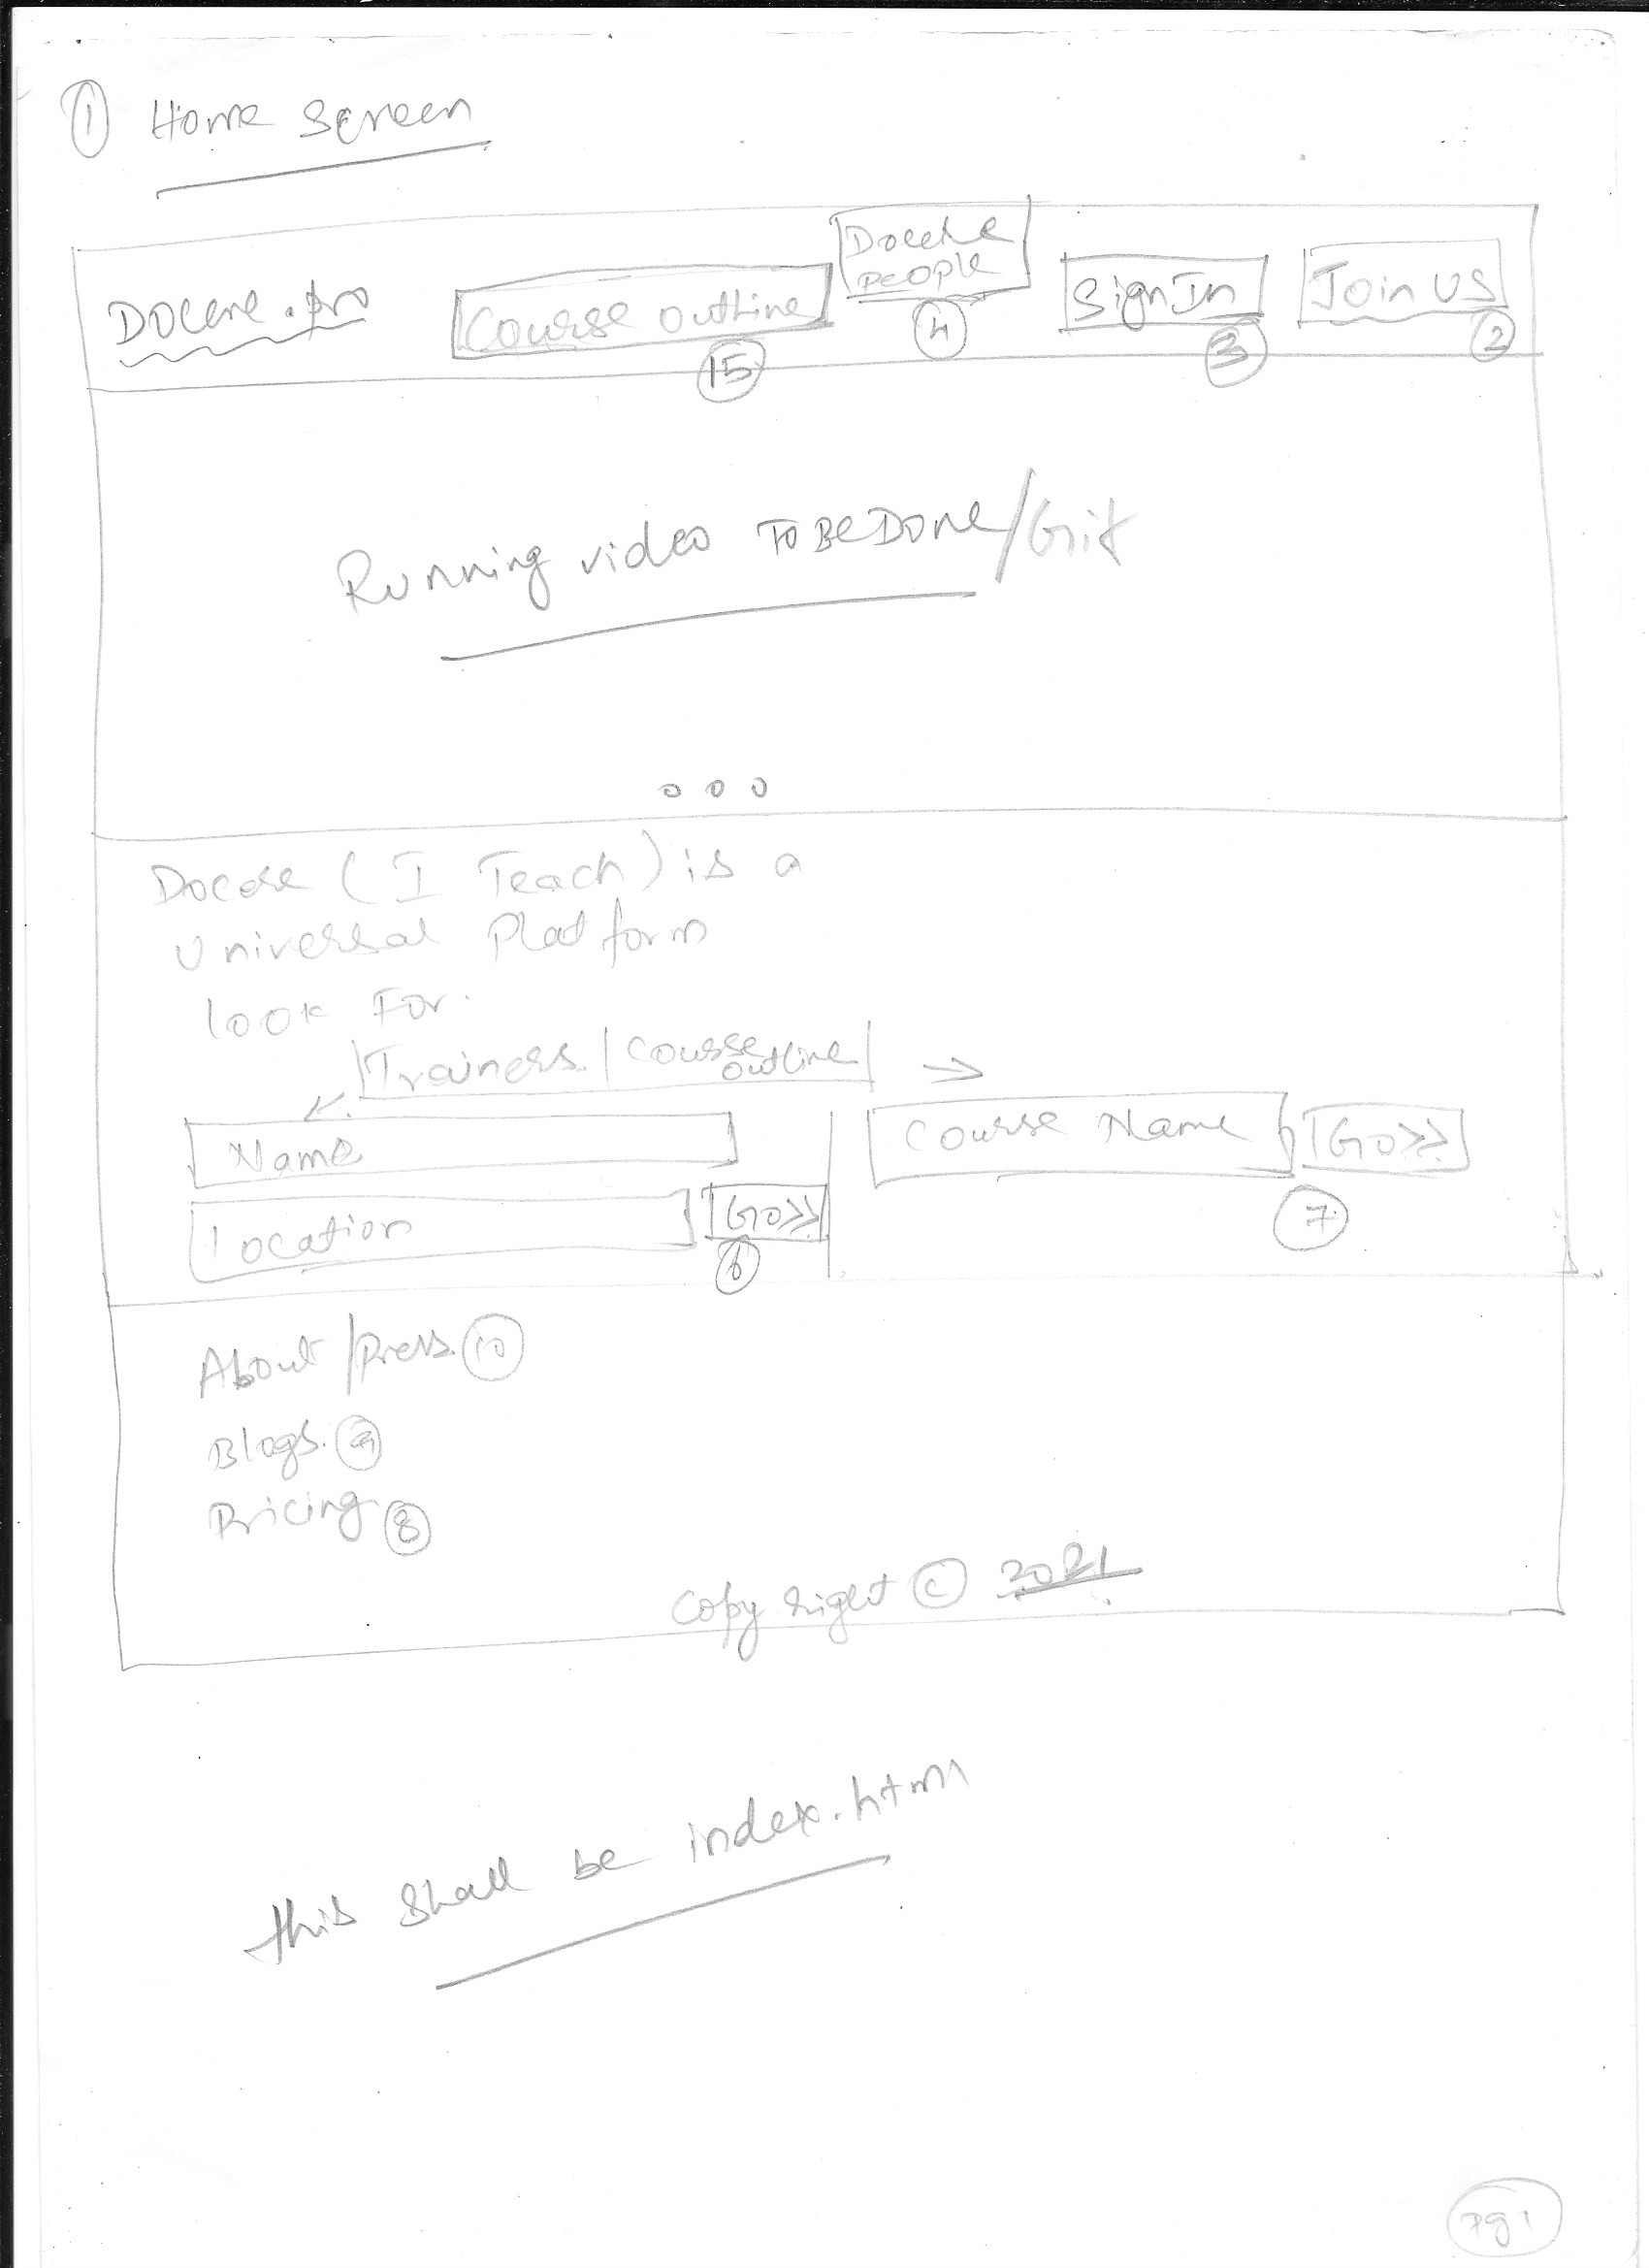 ① Home Screen
Docere.pro
Course Outline
15
Docere
People
4
Sign In
3
Join US
2
Running video TO BE DONE/Gif
Docere (I Teach) is a
Universal Platform
look For.
Trainers | Course outline
Name
Location
Go>>
6
Course Name
Go>>
7
About/Press 10
Blogs. 9
Pricing 8
Copy right © 2021
this shall be index.html
Pg 1